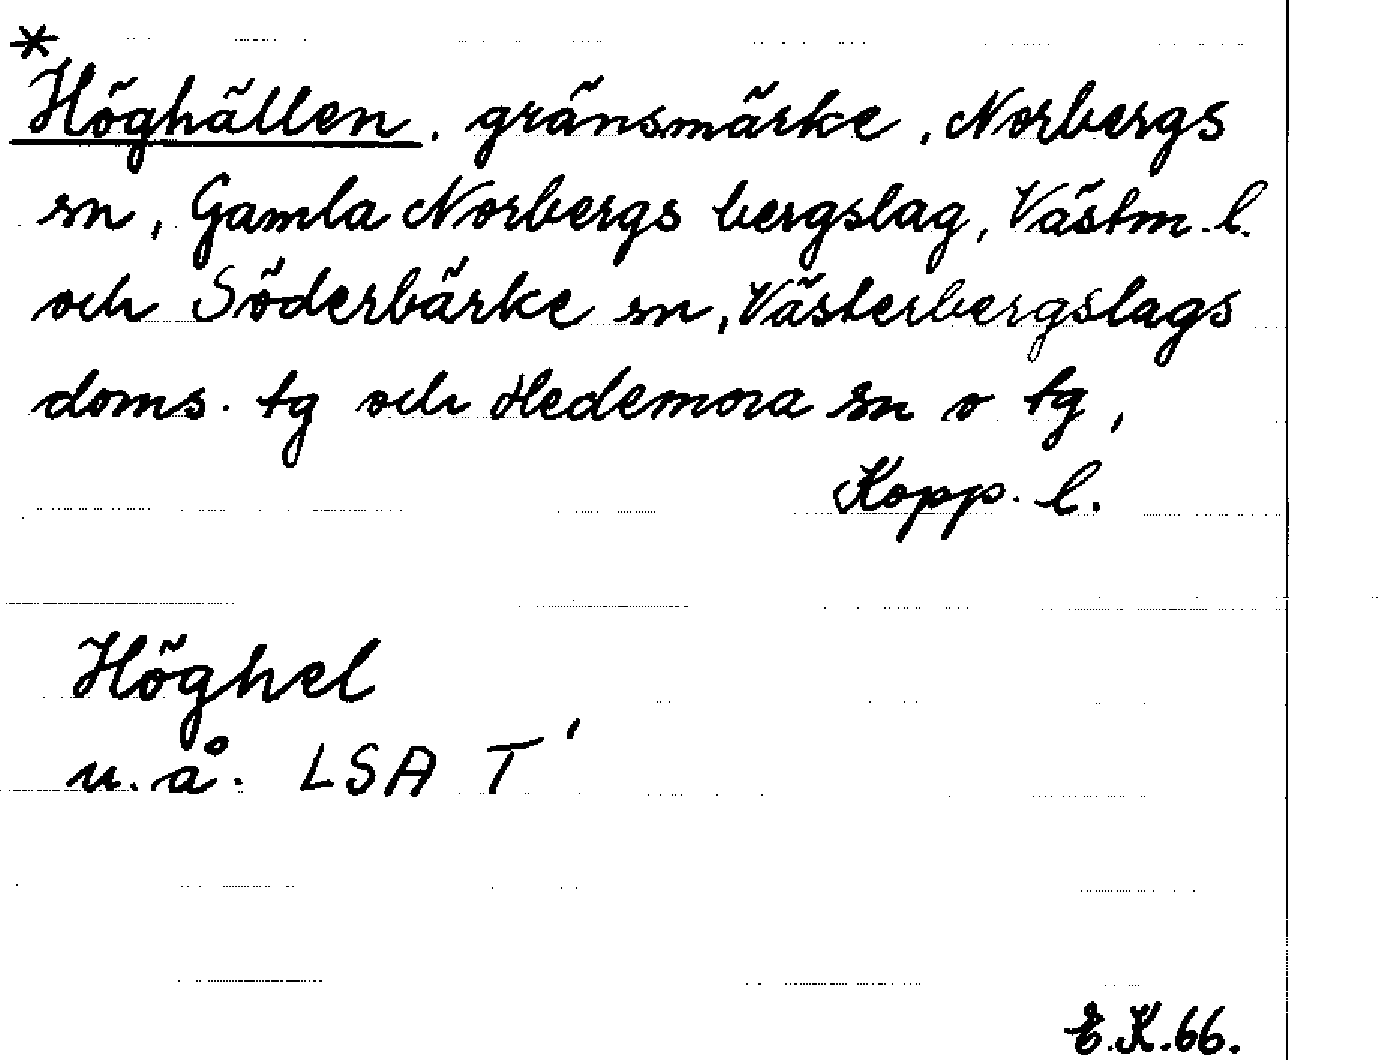 *
Höghällen, gränsmärke, Norbergs
sn, Gamla Norbergs bergslag, Västm. l.
och Söderbärke sn, Västerbergslags
doms. tg och Hedemora sn o tg,
Kopp. l.
Höghel
u.å. LSA T'
E.K.66.